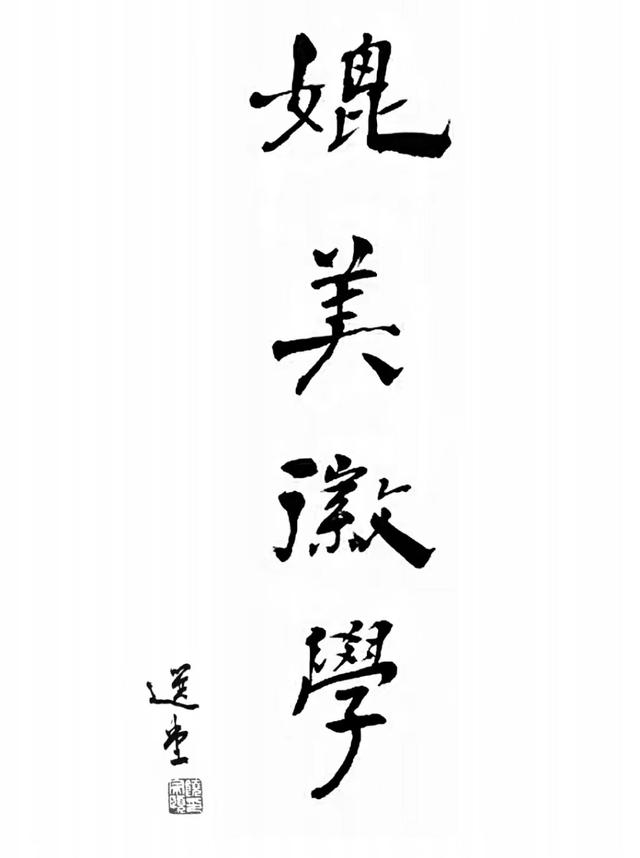 媲美徽學
選堂
饒宗頤印